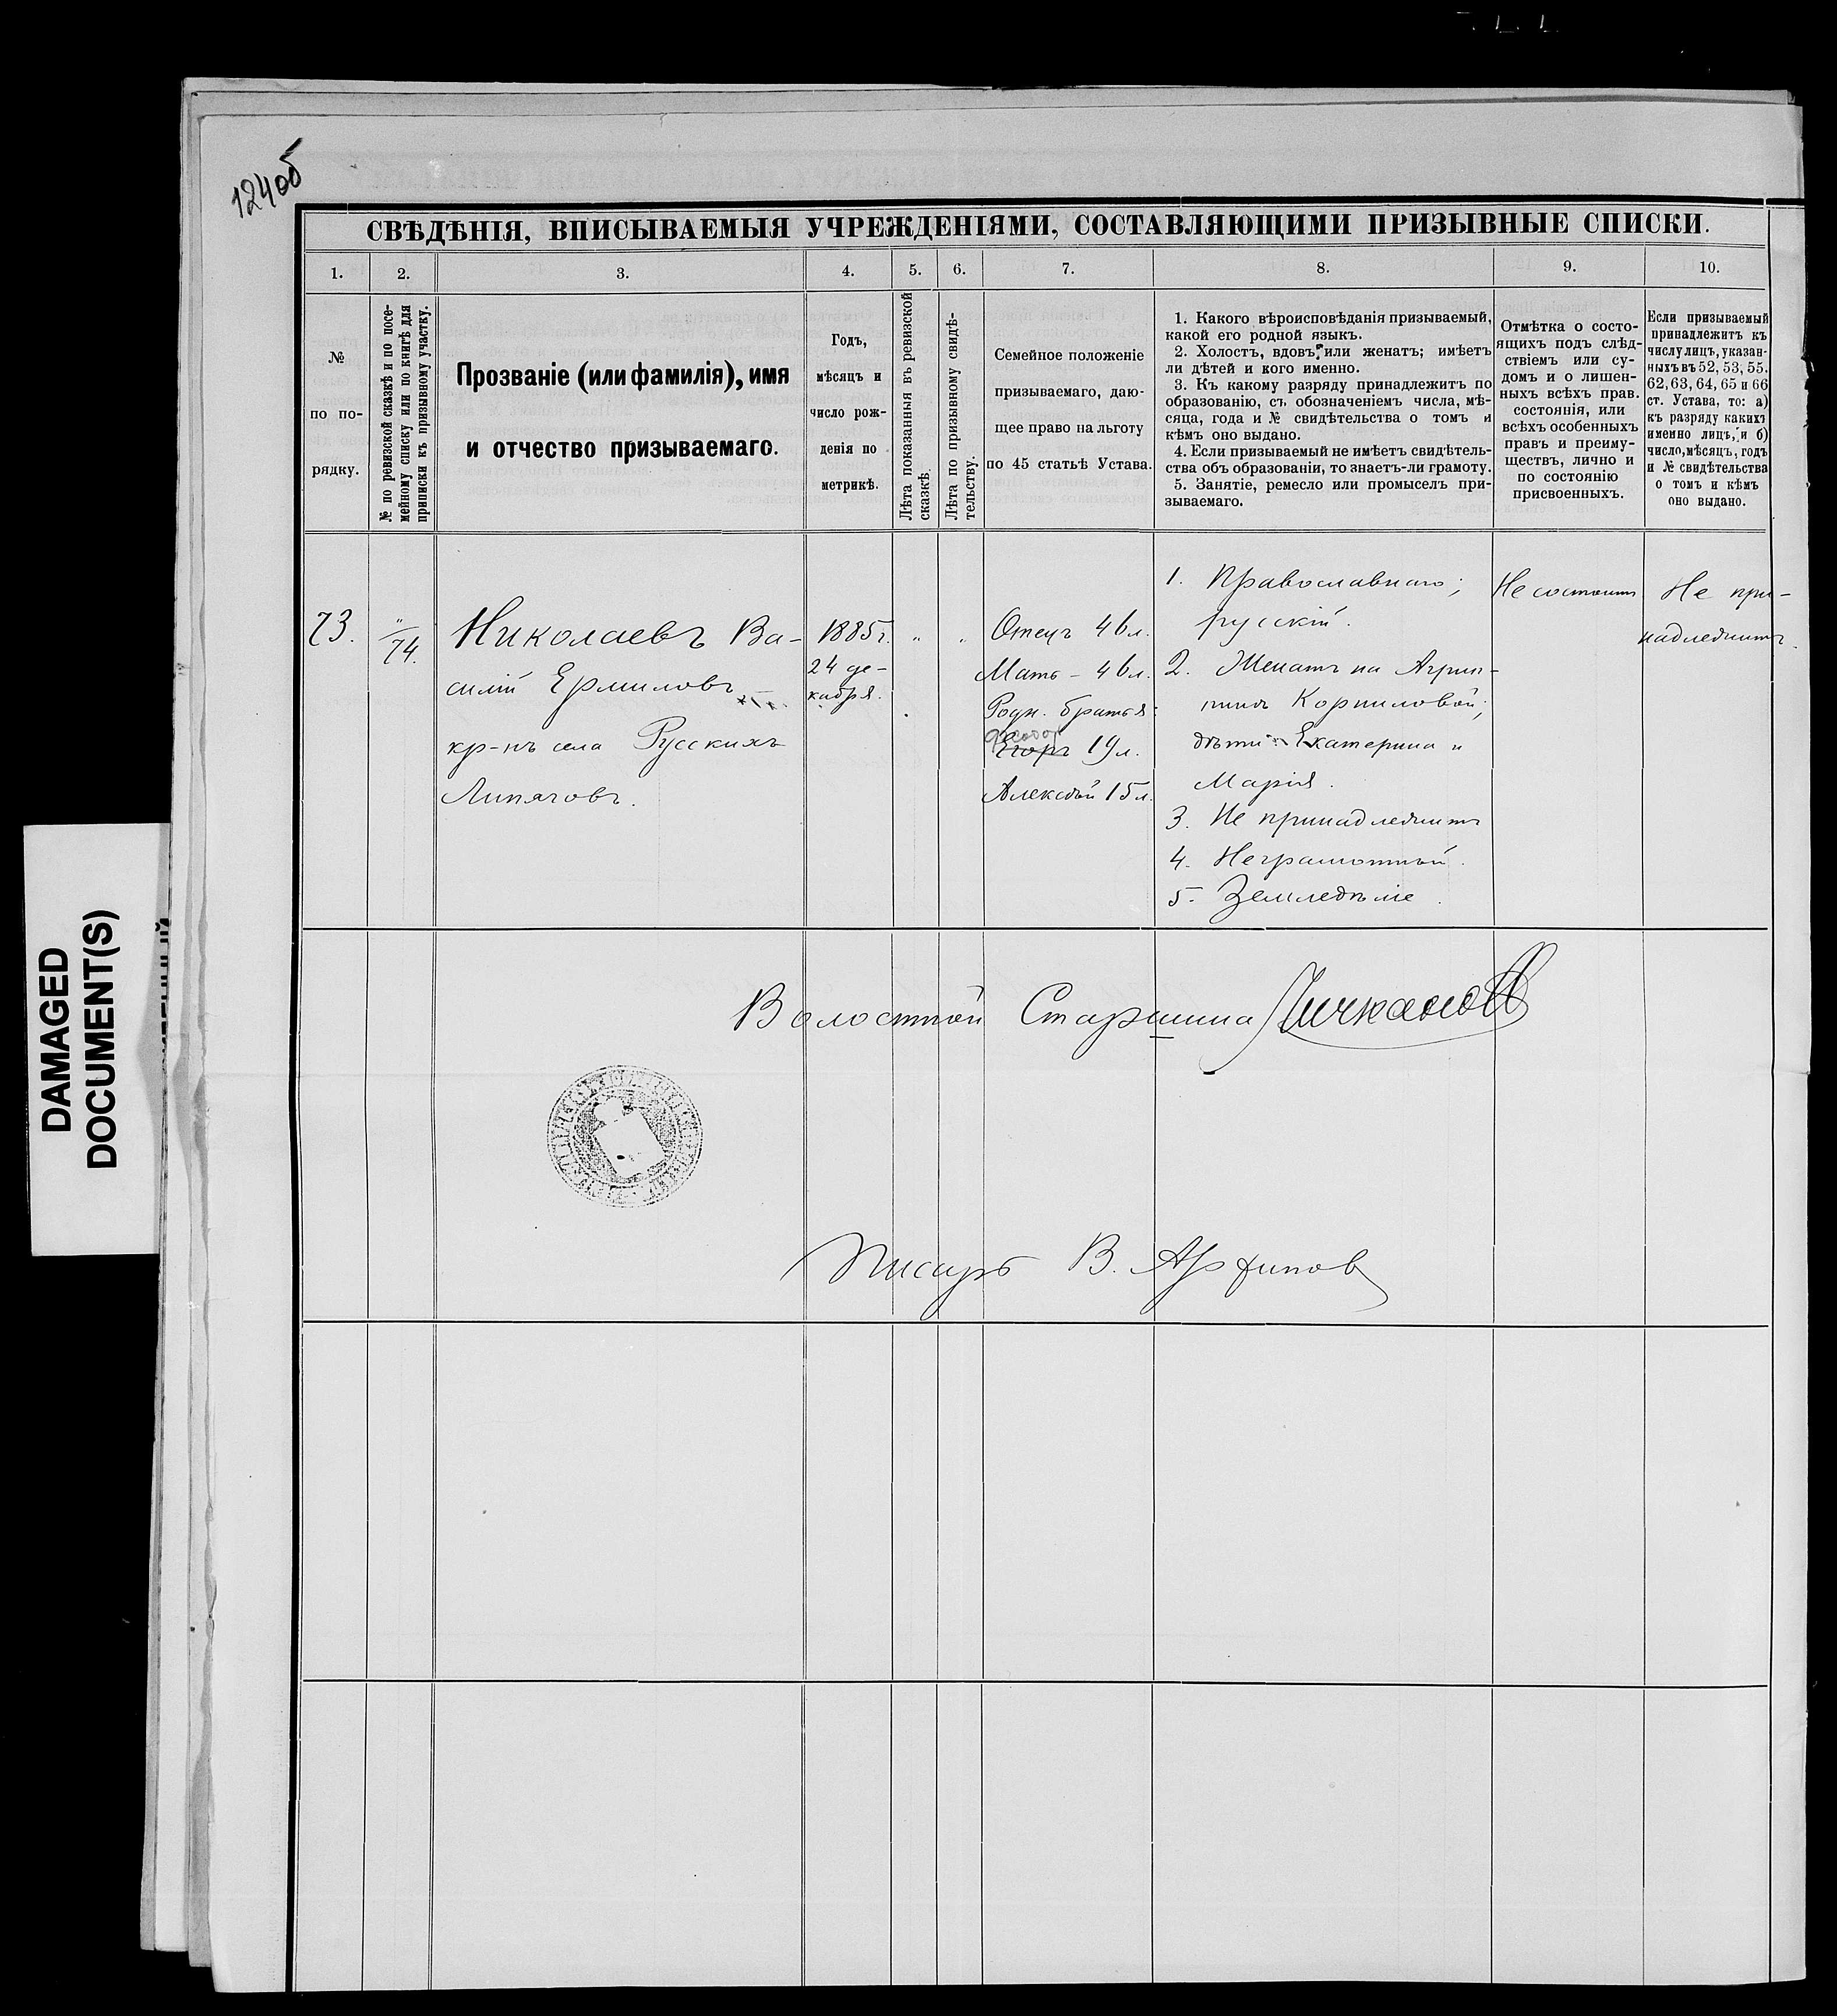 124об
СВѢДѢНІЯ, ВПИСЫВАЕМЫЯ УЧРЕЖДЕНІЯМИ, СОСТАВЛЯЮЩИМИ ПРИЗЫВНЫЕ СПИСКИ.
1.
2.
3.
4.
5.
6.
7.
8.
9.
10.
№
по по-
рядку.
№ по ревизской сказкѣ и по посе-
мейному списку или по книгѣ для
приписки къ призывному участку.
Прозваніе (или фамилія), имя
и отчество призываемаго.
Годъ,
мѣсяцъ и
число рож-
денія по
метрикѣ.
Лѣта показанныя въ ревизской
сказкѣ.
Лѣта по призывному свидѣ-
тельству.
Семейное положеніе
призываемаго, даю-
щее право на льготу
по 45 статьѣ Устава.
1. Какого вѣроисповѣданія призываемый,
какой его родной языкъ.
2. Холостъ, вдовъ или женатъ; имѣетъ
ли дѣтей и кого именно.
3. Къ какому разряду принадлежитъ по
образованію, съ обозначеніемъ числа, мѣ-
сяца, года и № свидѣтельства о томъ и
кѣмъ оно выдано.
4. Если призываемый не имѣетъ свидѣтель-
ства объ образованіи, то знаетъ-ли грамоту.
5. Занятіе, ремесло или промыселъ при-
зываемаго.
Отмѣтка о состо-
ящихъ подъ слѣд-
ствіемъ или су-
домъ и о лишен-
ныхъ всѣхъ прав.
состоянія, или
всѣхъ особенныхъ
правъ и преиму-
ществъ, лично и
по состоянію
присвоенныхъ.
Если призываемый
принадлежитъ къ
числу лицъ, указан-
ныхъ въ 52, 53, 55.
62, 63, 64, 65 и 66
ст. Устава, то: а)
къ разряду какихъ
именно лицъ, и б)
число, мѣсяцъ, годъ
и № свидѣтельства
о томъ и кѣмъ
оно выдано.
73.
"/74.
Николаевъ Ва-
силій Ермиловъ
кр-нъ села Русскихъ
Липяговъ.
1885г.
24 де-
кабря.
"
"
Отецъ 46л.
Мать - 46л.
Родн. братья:
Егоръ 19л.
Алексѣй 15л.
1. Православнаго;
русскій.
2. Женатъ на Агрип-
пинѣ Корниловой;
дѣти: Екатерина и
Марія.
3. Не принадлежитъ
4. Неграмотный.
5. Земледѣліе.
Не состоитъ
Не при-
надлежитъ.
Волостной Старшина Личкановъ
Писарь В. Архипов
DAMAGED
DOCUMENT(S)